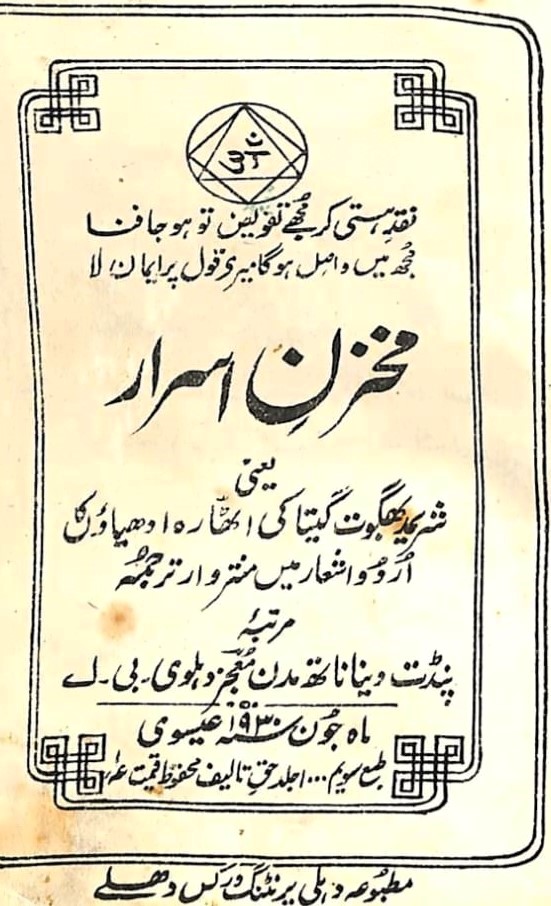 اوم
نقدِ ہستی کر مجھے تفویض تو ہو جا فنا
مجھ میں واصل ہوگا میری قول پر ایمان لا
مخزنِ اسرار
یعنی
شریمد بھگوت گیتا کی اٹھارہ ادھیاؤں کا
اُردو اشعار میں منتر وار ترجمہ
مرتبہٴ
پنڈت دینا ناتھ مدن مُعجز دہلوی۔ بی۔ اے
ماہ جُون سنہ ۱۹۳۰ عیسوی
طبع سویم ۱۰۰۰ جلد حقِ تالیف محفوظ قیمت
مطبُوعہ دہلی پرنٹنگ ورکس دھلے